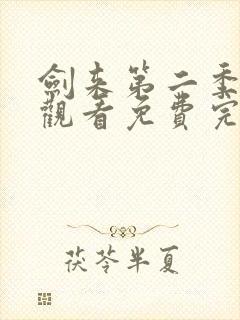 劍来第二季
觀看免費完
茯苓半夏